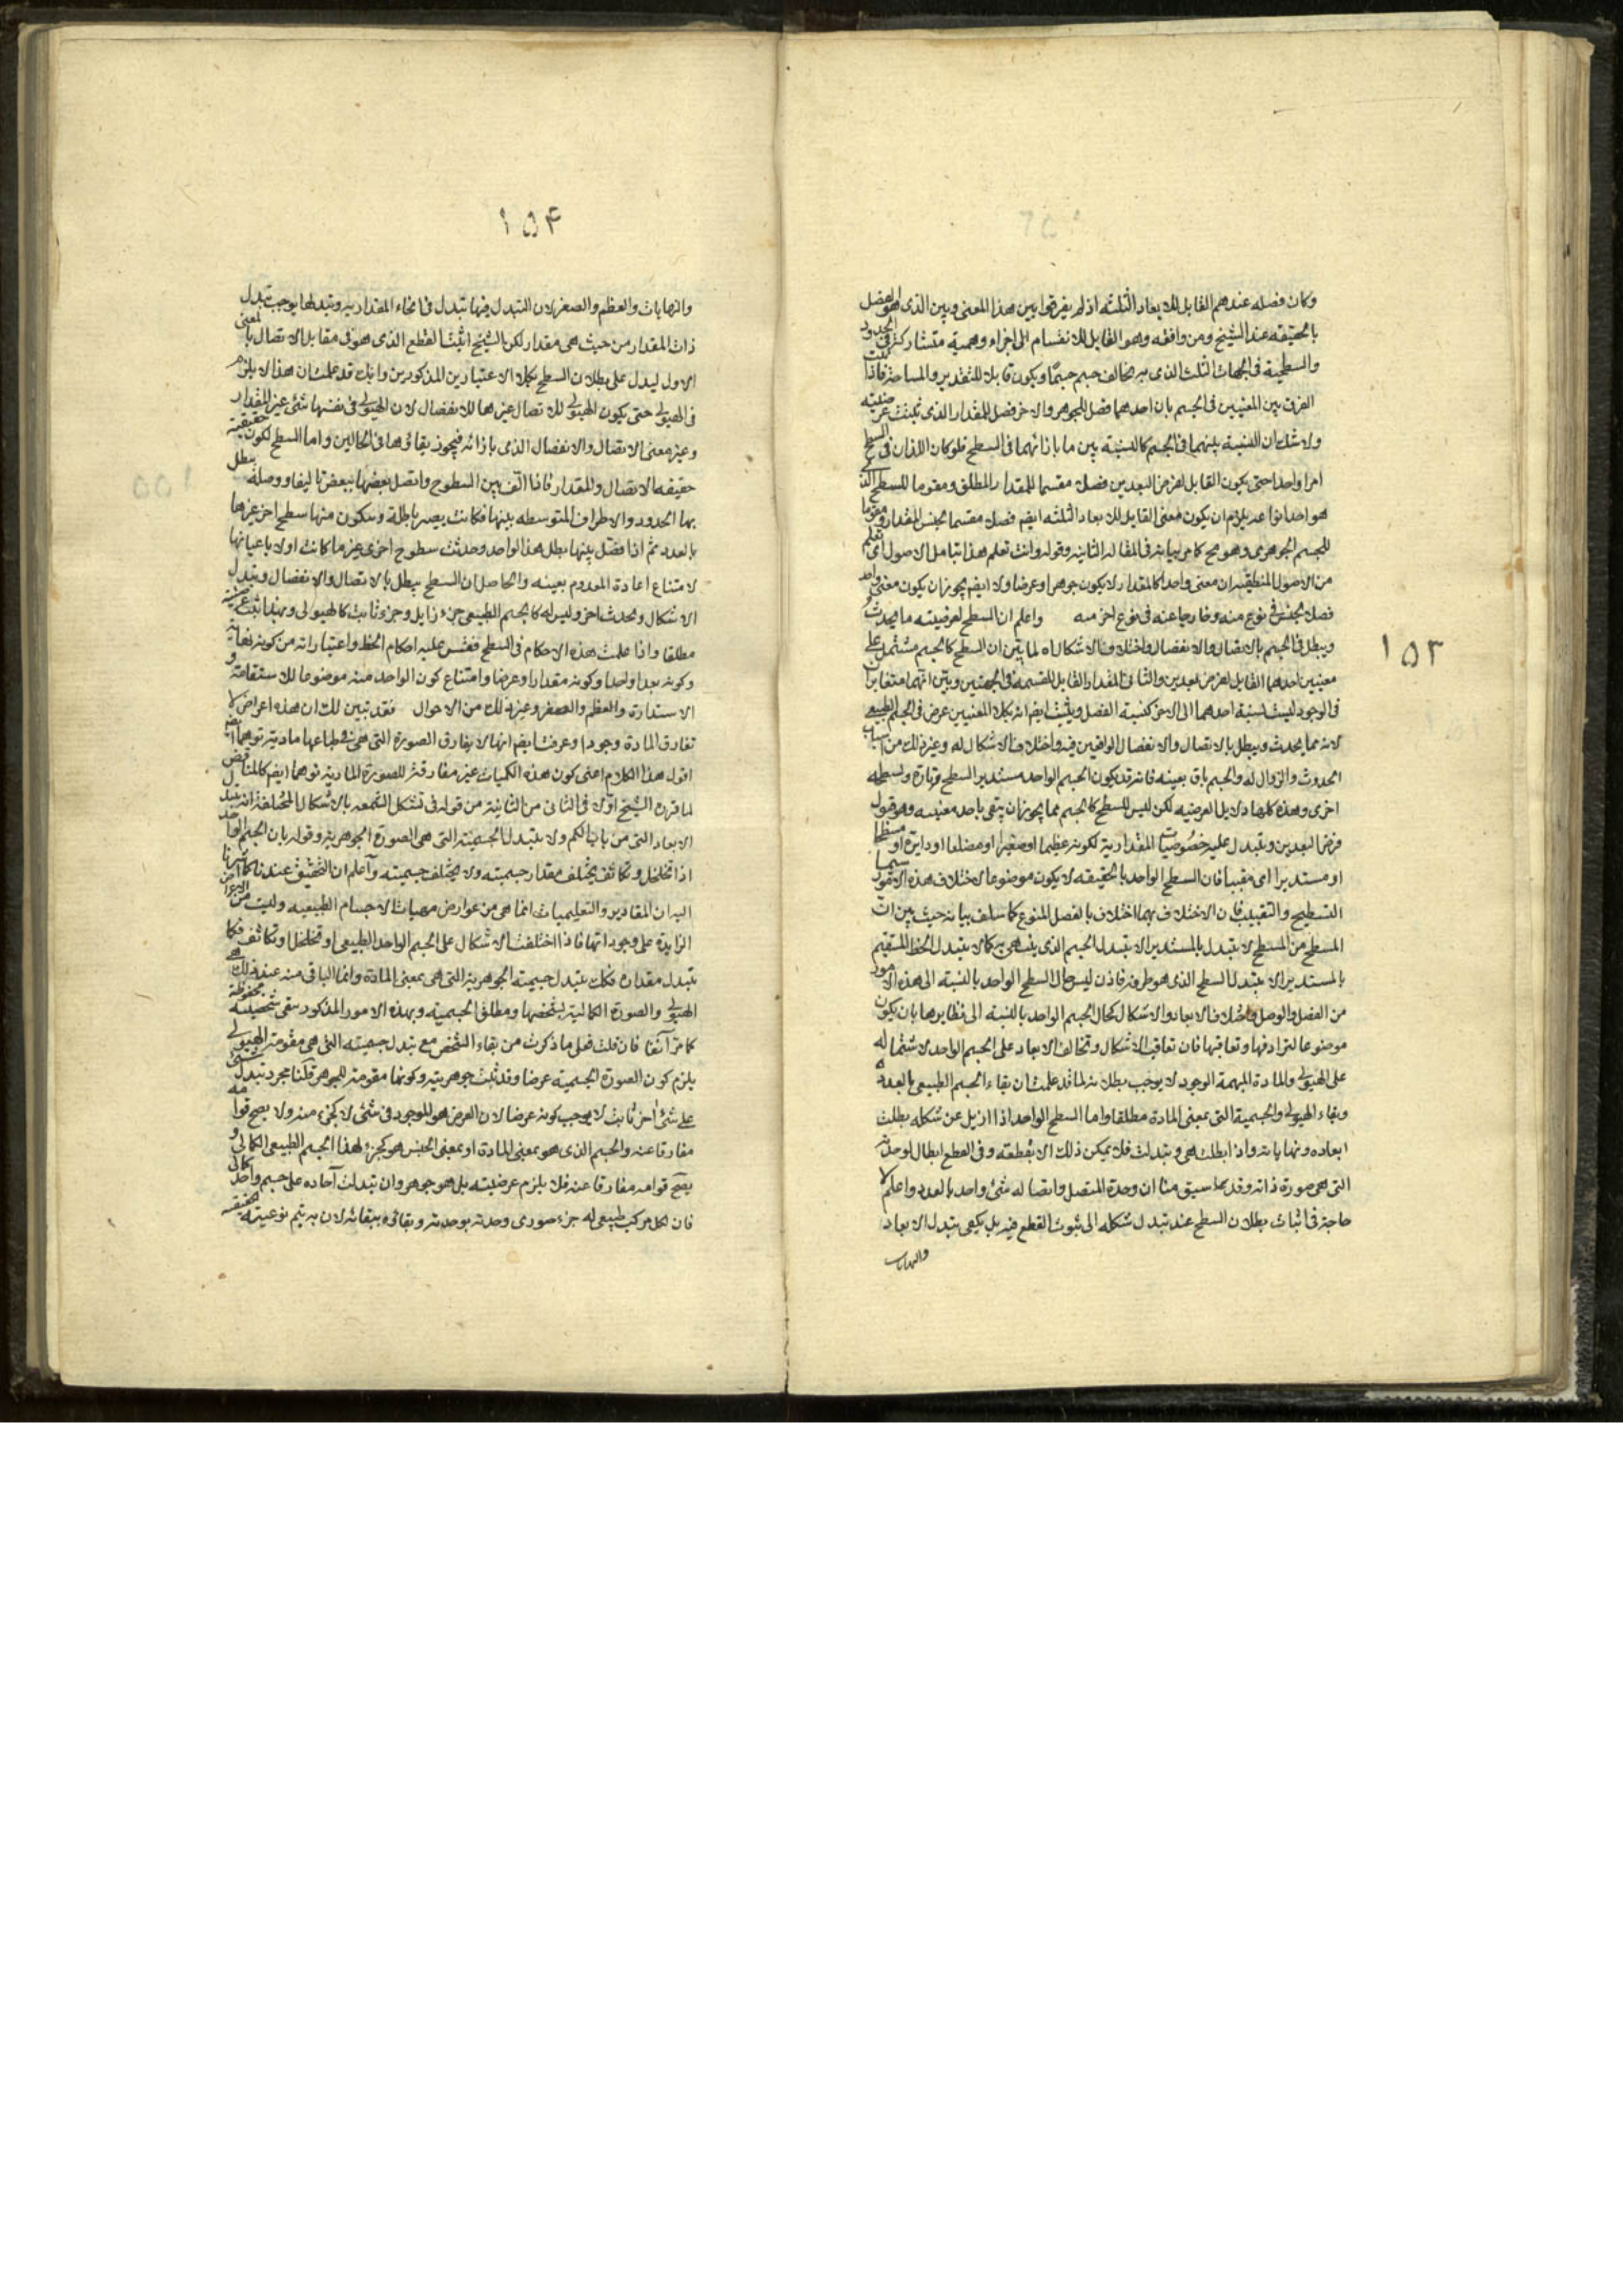 ١٥٣
وكان فصله عندهم القابل للابعاد الثلثه اذ لم يفرقوا بين هذا المعنى وبين الذى هو الفصل
بالحقيقه عند الشيخ ومن وافقه وهو القابل للانقسام الى اجزاء وهمية متشاركة فى الحدود
والسطحية فى الجهات الثلث الذى به يخالف جسم جسمًا ويكون قابلا للتقدير والمساحة فاذا ثبت
الفرق بين المعنيين فى الجسم بان احدهما فصل للجوهر والاخر فصل للمقدار الذى ثبتت عرضيته
ولا شك ان النسبة بينهما فى الجسم كالنسبة بين ما بازائهما فى السطح فلو كان اللذان فى السطح
امرا واحدا حتى يكون القابل لفرض البعدين فصلا مقسما للمقدار المطلق ومقوما للسطح الذى
هو احد انواعه يلزم ان يكون معنى القابل للابعاد الثلثه ايضا فصلا مقسما لجنس المقدار ومقوما
للجسم الجوهرى وهو مح كما مر بيانه فى المقالة الثانيه وقوله وانت تعلم هذا بتامل الاصول اى تعلم
من الاصول المنطقية ان معنى واحدا كالمقدار لا يكون جوهرا وعرضا ولا ايضم يجوز ان يكون معنى واحد
فصلا لجنس فى نوع منه وخارجا عنه فى نوع اخر منه واعلم ان السطح لعرضيته ما يحدث
ويبطل فى الجسم بالاتصال والانفصال واختلاف الاشكال اه لما بين ان السطح كالجسم مشتمل على
معنيين احدهما القابل لفرض بعدين والثانى المقدار القابل للقسمة فى الجهتين وبين انهما متغايران
فى الوجود ليست نسبة احدهما الى الاخر كنسبة الفصل ويثبت ايضم انه بكلا المعنيين عرض فى الجسم الطبيعى
لانه مما يحدث ويبطل بالاتصال والانفصال الواقعين فيه واختلاف الاشكال له وغير ذلك من اسباب
الحدوث والزوال له والجسم باق بعينه فانه قد يكون الجسم الواحد مستدير السطح تارة ومسطحه
اخرى وهذه كلها دلايل العرضيه لكن ليس للسطح كالجسم مما يجوز ان يبقى باحد معنييه وهو قبول
فرض البعدين ويتبدل عليه خصوصيات المقدارية لكونه عظيما او صغيرا او مضلعا او دايرة او مسطحا
او مستديرا اى مقببا فان السطح الواحد بالحقيقه لا يكون موضوعا لاختلاف هذه الامور سيما
التسطيح والتقبيب فان الاختلاف بهما اختلاف بالفصل المنوع كما سلف بيانه حيث بين ان
المسطح من السطح لا يتبدل بالمستدير الا بتبدل الجسم الذى ينتهى به كما لا يتبدل الخط المستقيم
بالمستدير الا بتبدل السطح الذى هو طرفه فاذن ليس حال السطح الواحد بالنسبة الى هذه الامور
من الفصل والوصل واختلاف الابعاد والاشكال كحال الجسم الواحد بالنسبة الى نظايرها بان يكون
موضوعا لترادفها وتعاقبها فان تعاقب الاشكال وتخالف الابعاد على الجسم الواحد لاشتماله
على الهيولى والمادة المبهمة الوجود لا يوجب بطلانه لما قد علمت ان بقاء الجسم الطبيعى بالعدد
وبقاء الهيولى والجسمية التى بمعنى المادة مطلقا واما السطح الواحد اذا ازيل عن شكله بطلت
ابعاده ونهاياته واذا بطلت هى وتبدلت فلا يمكن ذلك الا بقطعه وفى القطع ابطال لوحدته
التى هى صورة ذاته وقد بها سبق منا ان وحدة المتصل واتصاله شئ واحد بالعدد واعلم لا
حاجة فى اثبات بطلان السطح عند تبدل شكله الى ثبوت القطع فيه بل يكفى تبدل الابعاد
والنهايات
١٥۴
والنهايات والعظم والصغر لان التبدل فيها تبدل فى انحاء المقداريه وتبدلها يوجب تبدل
ذات المقدار من حيث هى مقدار لكن الشيخ اثبت القطع الذى هو فى مقابل الاتصال بالمعنى
الاول ليدل على بطلان السطح بكلا الاعتبارين المذكورين وانك قد علمت ان هذا لا يلزم
فى الهيولى حتى يكون الهيولى للاتصال غيرها للانفصال لان الهيولى فى نفسها شئ غير المقدار
وغير معنى الاتصال والانفصال الذى بازائه فيجوز بقائها فى الحالين واما السطح لكون حقيقته
حقيقه الاتصال والمقدار فاذا الف بين السطوح واتصل بعضها ببعض تاليفا ووصلة يبطل
بها الحدود والاطراف المتوسطه بينها فكانت يصير باطلة ويتكون منها سطح اخر غيرها
بالعدد ثم اذا فصل بينها بطل هذا الواحد وحدثت سطوح اخرى غير ما كانت اولا باعيانها
لامتناع اعادة المعدوم بعينه والحاصل ان السطح يبطل بالاتصال والانفصال وتبدل
الاشكال ويحدث اخر وليس له كالجسم الطبيعى جزء زايل وجزء ثابت كالهيولى وبهذا ثبت عرضيته
مطلقا واذا علمت هذه الاحكام فى السطح فقس عليه احكام الخط واعتباراته من كونه نهاية
وكونه بعدا واحدا وكونه مقدارا وعرضا وامتناع كون الواحد منه موضوعا للاستقامة و
الاستدارة والعظم والصغر وغير ذلك من الاحوال فقد تبين لك ان هذه اعراض لا
تفارق المادة وجودا وعرفت ايضم انها لا يفارق الصورة التى هى فى طباعها مادية توهما ايضم
اقول هذا الكلام اعنى كون هذه الكميات غير مفارقة للصورة المادية توهما ايضم كالمناقض
لما قرره الشيخ اولا فى الثانى من الثانية من قوله فى تشكل الشمعه بالاشكال المختلفة انه تبدل
الابعاد التى من باب الكم ولا يتبدل الجسمية التى هى الصورة الجوهرية وقوله بان الجسم الواحد
اذا تخلخل وتكاثف يختلف مقدار جسميته ولا يختلف جسميته وآعلم ان التحقيق عندنا كما اشرنا
اليه ان المقادير والتعليميات انما هى من عوارض مهيات الاجسام الطبيعيه وليست من الاعراض
الزايدة على وجوداتها فاذا اختلفت الاشكال على الجسم الواحد الطبيعى او تخلخل وتكاثف فكما
يتبدل مقداره فكك يتبدل جسميته الجوهرية التى هى بمعنى المادة وانما الباقى منه عند ذلك هى
الهيولى والصورة الكمالية بشخصها ومطلق الجسمية وبهذه الامور المذكور يبقى شخصيته محفوظة
كما مر آنفا فان قلت فعلى ما ذكرت من بقاء الشخص مع تبدل جسميته التى هى مقومة الهيولى
يلزم كون الصورة الجسمية عرضا وقد ثبت جوهريته وكونها مقومة للجوهر قلنا مجرد تبدل شئ
على شئ اخر ثابت لا يوجب كونه عرضا لان العرض هو الموجود فى شئ لا كجزء منه ولا يصح قوامه
مفارقا عنه والجسم الذى هو بمعنى المادة او بمعنى الجنس هو كجزء لهذا الجسم الطبيعى الكمالى و
يصح قوامه مفارقا عنه فلا يلزم عرضيته بل هو جوهر وان تبدلت آحاده على جسم واحد كمالى
فان لكل مركب طبيعى له جزء صورى وحدته بوحدته وبقاؤه ببقائه لان به يتم نوعيته حقيقه